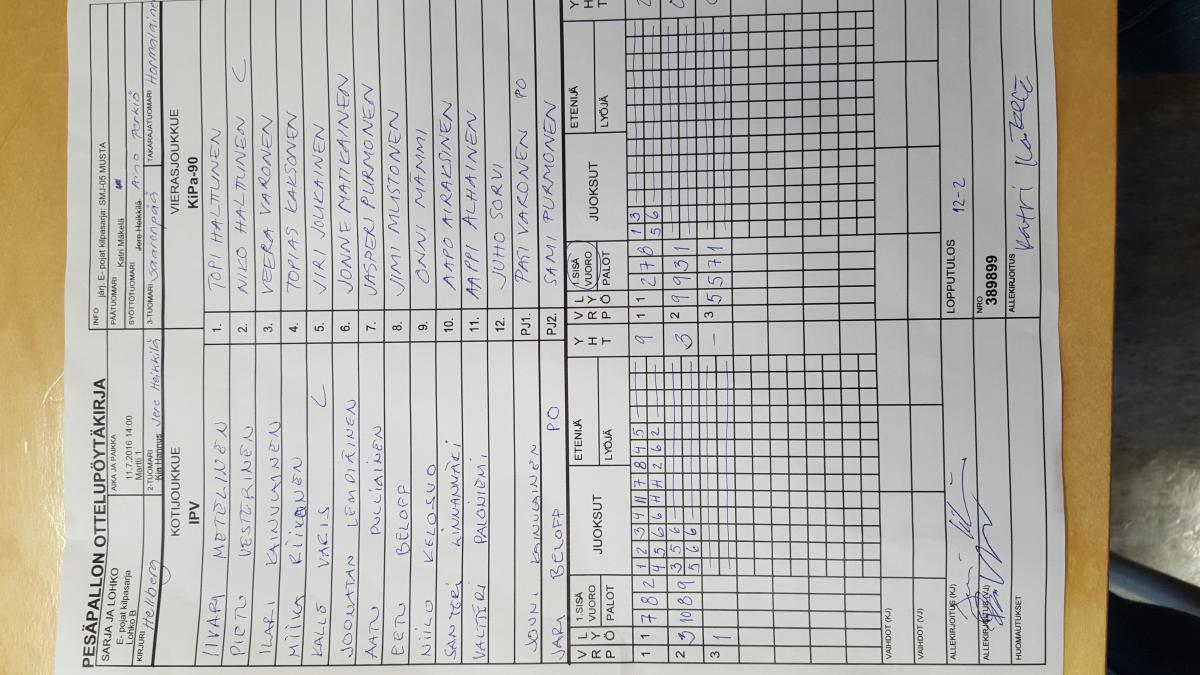 PESÄPALLON OTTELUPÖYTÄKIRJA
SARJA JA LOHKO
E- pojat kilpasarja
Lohko B
AIKA JA PAIKKA
11.7.2016 14:00
Martti 1
INFO järj. E- pojat kilpasarja: SMJ-05 MUSTA
PÄÄTUOMARI Katri Mäkelä
SYÖTTÖTUOMARI Jere Heikkilä Aino
KIRJURI Hellberg
2-TUOMARI Kin Hannus Jere Heikkilä
3-TUOMARI Saarenpää
TAKARAJATUOMARI
KOTIJOUKKUE
IPV
VIERASJOUKKUE
KiPa-90
IIVARI METELINEN 1. TOPI HALTTUNEN
PIETU VESTERINEN 2. NIKO HALTTUNEN C
ILARI KAINULAINEN 3. VEERA VARONEN
MIIKA RIIKONEN 4. TOPIAS KAKSONEN
KALLE VARIS C 5. VIRI JOUKAINEN
JOONATAN LEMDIÄINEN 6. JONNE MATIKAINEN
AATU PULLIAINEN 7. JASPERI PURMONEN
EETU BELOFF 8. JIMI MUSTONEN
NIILO KELOSUO 9. ONNI MÄMMI
SANTERI LINNANMÄKI 10. AAPO AIRAKSINEN
VALTTERI PALONIEMI 11. AAPPI ALHAINEN
12. JUHO SORVI
JOUNI KAINULAINEN PJ1. PASI VARONEN PO
JARI BELOFF PO PJ2. SAMI PURMONEN
V R P L Y Ö 1.SISÄ VUORO PALOT JUOKSUT ETENIJÄ LYÖJÄ Y H T V R P L Y Ö 1.SISÄ VUORO PALOT JUOKSUT ETENIJÄ LYÖJÄ Y H T
1 1 7 8 2 1 2 3 4 11 7 8 4 5 9 1 1 2 7 8 1 3 2
4 5 6 6 H H 2 6 2 5 6
2 3 10 8 9 3 5 6 3 2 9 9 3 1
5 6 6
3 1 – 3 5 5 7 1
VAIHDOT (KJ)
VAIHDOT (VJ)
ALLEKIRJOITUS (KJ)
LOPPUTULOS 12-2
ALLEKIRJOITUS (VJ)
NRO
389899
HUOMAUTUKSET
ALLEKIRJOITUS
Katri